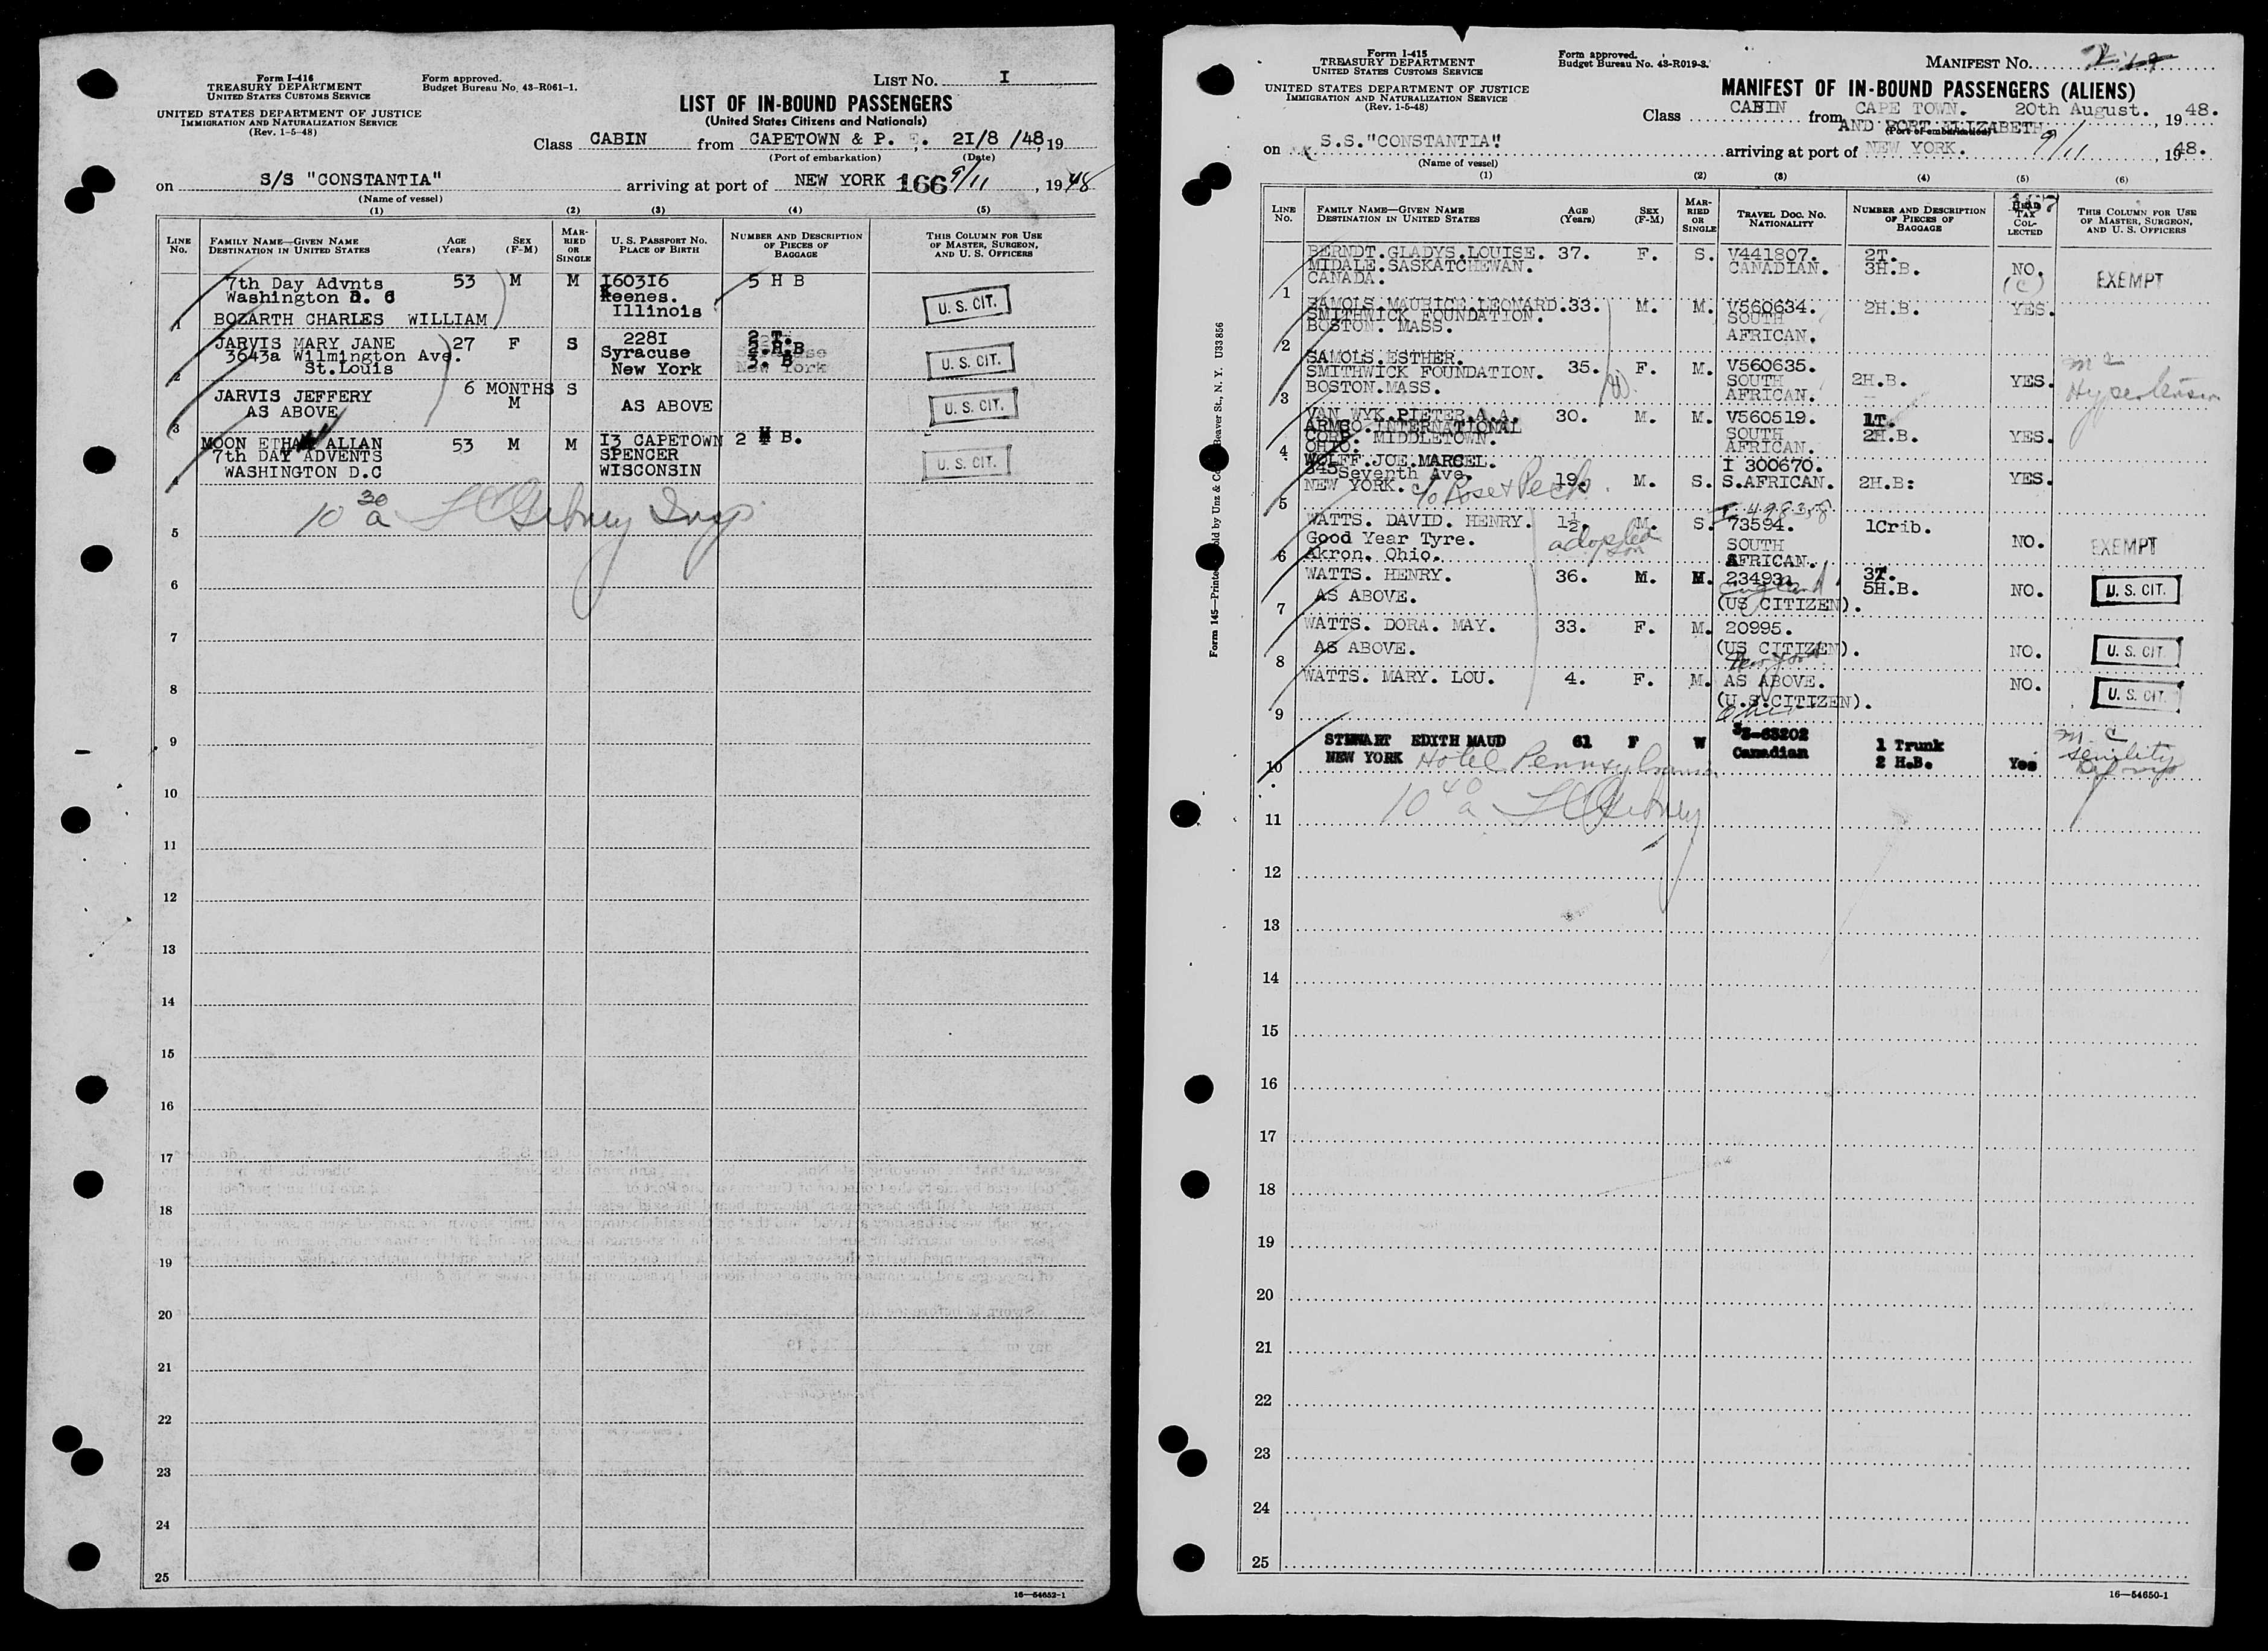 Form I-416
TREASURY DEPARTMENT
UNITED STATES CUSTOMS SERVICE
UNITED STATES DEPARTMENT OF JUSTICE
IMMIGRATION AND NATURALIZATION SERVICE
(Rev. 1-5-48)
Form approved.
Budget Bureau No. 43-R061-1.
LIST NO. I
LIST OF IN-BOUND PASSENGERS
(United States Citizens and Nationals)
Class CABIN from CAPETOWN & P. E. 2I/8 /48, 19
(Port of embarkation) (Date)
on S/S "CONSTANTIA" arriving at port of NEW YORK 166 9/11, 1948
(Name of vessel)
(1) (2) (3) (4) (5)
LINE NO.
FAMILY NAME—GIVEN NAME
DESTINATION IN UNITED STATES
AGE (Years)
SEX (F-M)
MARRIED OR SINGLE
U. S. PASSPORT NO.
PLACE OF BIRTH
NUMBER AND DESCRIPTION OF PIECES OF BAGGAGE
THIS COLUMN FOR USE OF MASTER, SURGEON, AND U. S. OFFICERS
7th Day Advnts 53 M M I603I6 5 H B
Washington D. C Keenes.
Illinois U. S. CIT.
1 BOZARTH CHARLES WILLIAM
JARVIS MARY JANE 27 F S 228I 2 T.
3643a Wilmington Ave. Syracuse 2.H.B
2 St.Louis New York 3. B U. S. CIT.
JARVIS JEFFERY 6 MONTHS S
AS ABOVE M AS ABOVE U. S. CIT.
3
MOON ETHAN ALLAN 53 M M I3 CAPETOWN 2 H B.
7th DAY ADVENTS SPENCER
4 WASHINGTON D.C WISCONSIN U. S. CIT.
10 30 a
5
6
7
8
9
10
11
12
13
14
15
16
17
18
19
20
21
22
23
24
25
16—54652-1
Form I-415
TREASURY DEPARTMENT
UNITED STATES CUSTOMS SERVICE
UNITED STATES DEPARTMENT OF JUSTICE
IMMIGRATION AND NATURALIZATION SERVICE
(Rev. 1-5-48)
Form approved.
Budget Bureau No. 43-R019-3.
MANIFEST NO.
MANIFEST OF IN-BOUND PASSENGERS (ALIENS)
Class CABIN from CAPE TOWN. 20th August. , 1948.
AND PORT ELIZABETH
(Port of embarkation)
on S.S."CONSTANTIA". arriving at port of NEW YORK. 9/11, 1948.
(Name of vessel)
(1) (2) (3) (4) (5) (6)
LINE NO.
FAMILY NAME—GIVEN NAME
DESTINATION IN UNITED STATES
AGE (Years)
SEX (F-M)
MARRIED OR SINGLE
TRAVEL DOC. NO.
NATIONALITY
NUMBER AND DESCRIPTION OF PIECES OF BAGGAGE
HEAD TAX COLLECTED
THIS COLUMN FOR USE OF MASTER, SURGEON, AND U. S. OFFICERS
BERNDT.GLADYS.LOUISE. 37. F. S. V441807. 2T.
MIDALE.SASKATCHEWAN. CANADIAN. 3H.B. NO.
1 CANADA. (C) EXEMPT
SAMOLS.MAURICE.LEONARD.33. M. M. V560634. 2H.B. YES.
SMITHWICK FOUNDATION. SOUTH
2 BOSTON. MASS. AFRICAN.
SAMOLS.ESTHER. 35. F. M. V560635. m 2
SMITHWICK FOUNDATION. SOUTH 2H.B. YES.
3 BOSTON.MASS. AFRICAN. Hypertension
VAN WYK.PIETER.A.A. 30. M. M. V560519. 1T.
ARMCO.INTERNATIONAL SOUTH 2H.B. YES.
CORP. MIDDLETOWN. AFRICAN.
4 OHIO.
WOLFF.JOE.MARCEL. I 300670.
345 Seventh Ave. 19. M. S. S.AFRICAN. 2H.B: YES.
5 NEW YORK. c/o Rose & Peck.
I-498358
WATTS. DAVID. HENRY. 1½. M. S. 73594. 1Crib.
Good Year Tyre. adopted son SOUTH NO. EXEMPT
6 Akron. Ohio. AFRICAN.
WATTS. HENRY. 36. M. M. 23493. 3T.
AS ABOVE. England 5H.B. NO. U. S. CIT.
7 (US CITIZEN).
WATTS. DORA. MAY. 33. F. M. 20995.
AS ABOVE. (US CITIZEN). NO. U. S. CIT.
8 New York
WATTS. MARY. LOU. 4. F. M. AS ABOVE. NO.
(U.S.CITIZEN). U. S. CIT.
9 Ohio
STEWART EDITH MAUD 61 F W 63202 1 Trunk m. C
NEW YORK Hotel Pennsylvania Canadian 2 H.B. Yes senility
10
10 40 a
11
12
13
14
15
16
17
18
19
20
21
22
23
24
25
16—54650-1